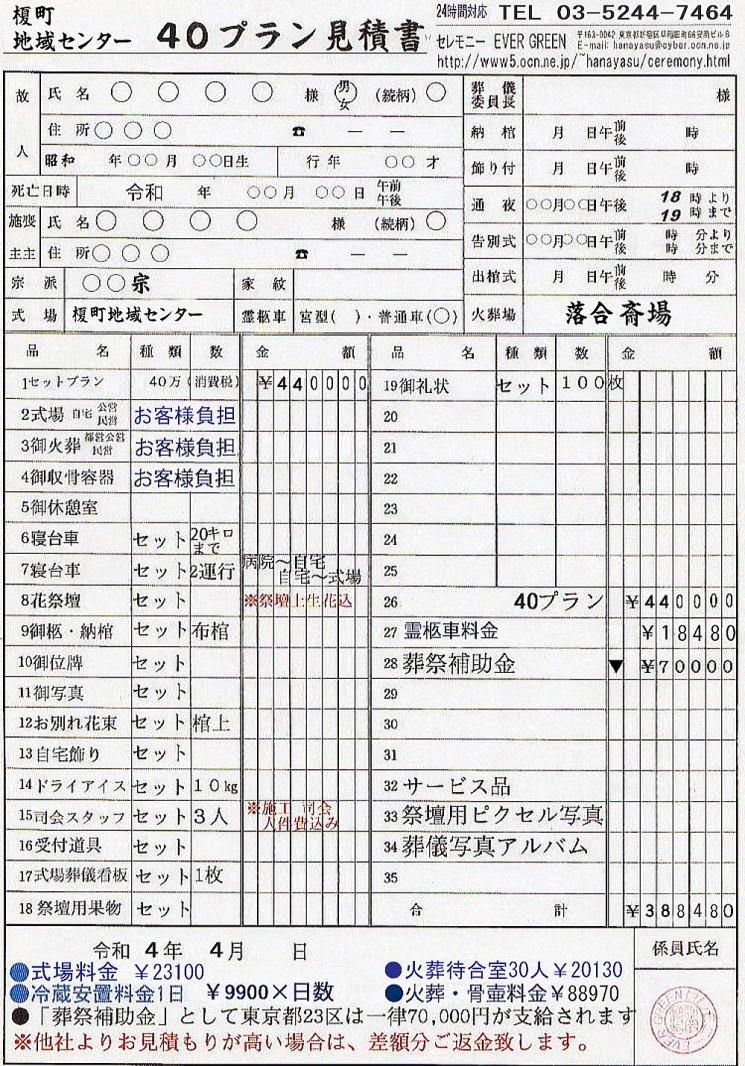 榎町
地域センター 40プラン見積書
24時間対応 TEL 03-5244-7464
セレモニー EVER GREEN
E-mail: hanayasu@cyber.ocn.ne.jp
http://www5.ocn.ne.jp/~hanayasu/ceremony.html
故人 氏名 ○ ○ ○ ○ 様 男 女 (続柄) ○
住所 ○ ○ ○ ☎ — —
昭和 年○○月 ○○日生 行年 ○○才
死亡日時 令和 年 ○○月 ○○日 午前 午後
施主 喪主 氏名 ○ ○ ○ ○ 様 (続柄) ○
住所 ○ ○ ○ ☎ — —
宗派 ○○宗 家紋
式場 榎町地域センター 霊柩車 宮型( )・普通車(○)
葬儀委員長 様
納棺 月 日午前後 時
飾り付 月 日午前後 時
通夜 ○○月○○日午後 18時より 19時まで
告別式 ○○月○○日午前後 時 分より 時 分まで
出棺式 月 日午前後 時 分
火葬場 落合斎場
品名 種類 数 金額
1セットプラン 40万(消費税) ¥440000
2式場 自宅 公営 民営 お客様負担
3御火葬 都営公営 民営 お客様負担
4御収骨容器 お客様負担
5御休憩室
6寝台車 セット 20キロまで
7寝台車 セット 2運行 病院～自宅 自宅～式場
8花祭壇 セット ※祭壇上生花込
9御柩・納棺 セット 布棺
10御位牌 セット
11御写真 セット
12お別れ花束 セット 棺上
13自宅飾り セット
14ドライアイス セット 10kg
15司会スタッフ セット 3人 ※施工 司会 人件費込み
16受付道具 セット
17式場葬儀看板 セット 1枚
18祭壇用果物 セット
品名 種類 数 金額
19御礼状 セット 100枚
20
21
22
23
24
25
26 40プラン ¥440000
27 霊柩車料金 ¥18480
28 葬祭補助金 ▼ ¥70000
29
30
31
32 サービス品
33 祭壇用ピクセル写真
34 葬儀写真アルバム
35
合計 ¥388480
令和 4年 4月 日
係員氏名
●式場料金 ¥23100 ●火葬待合室30人¥20130
●冷蔵安置料金1日 ¥9900×日数 ●火葬・骨壺料金¥88970
●「葬祭補助金」として東京都23区は一律70,000円が支給されます
※他社よりお見積もりが高い場合は、差額分ご返金致します。